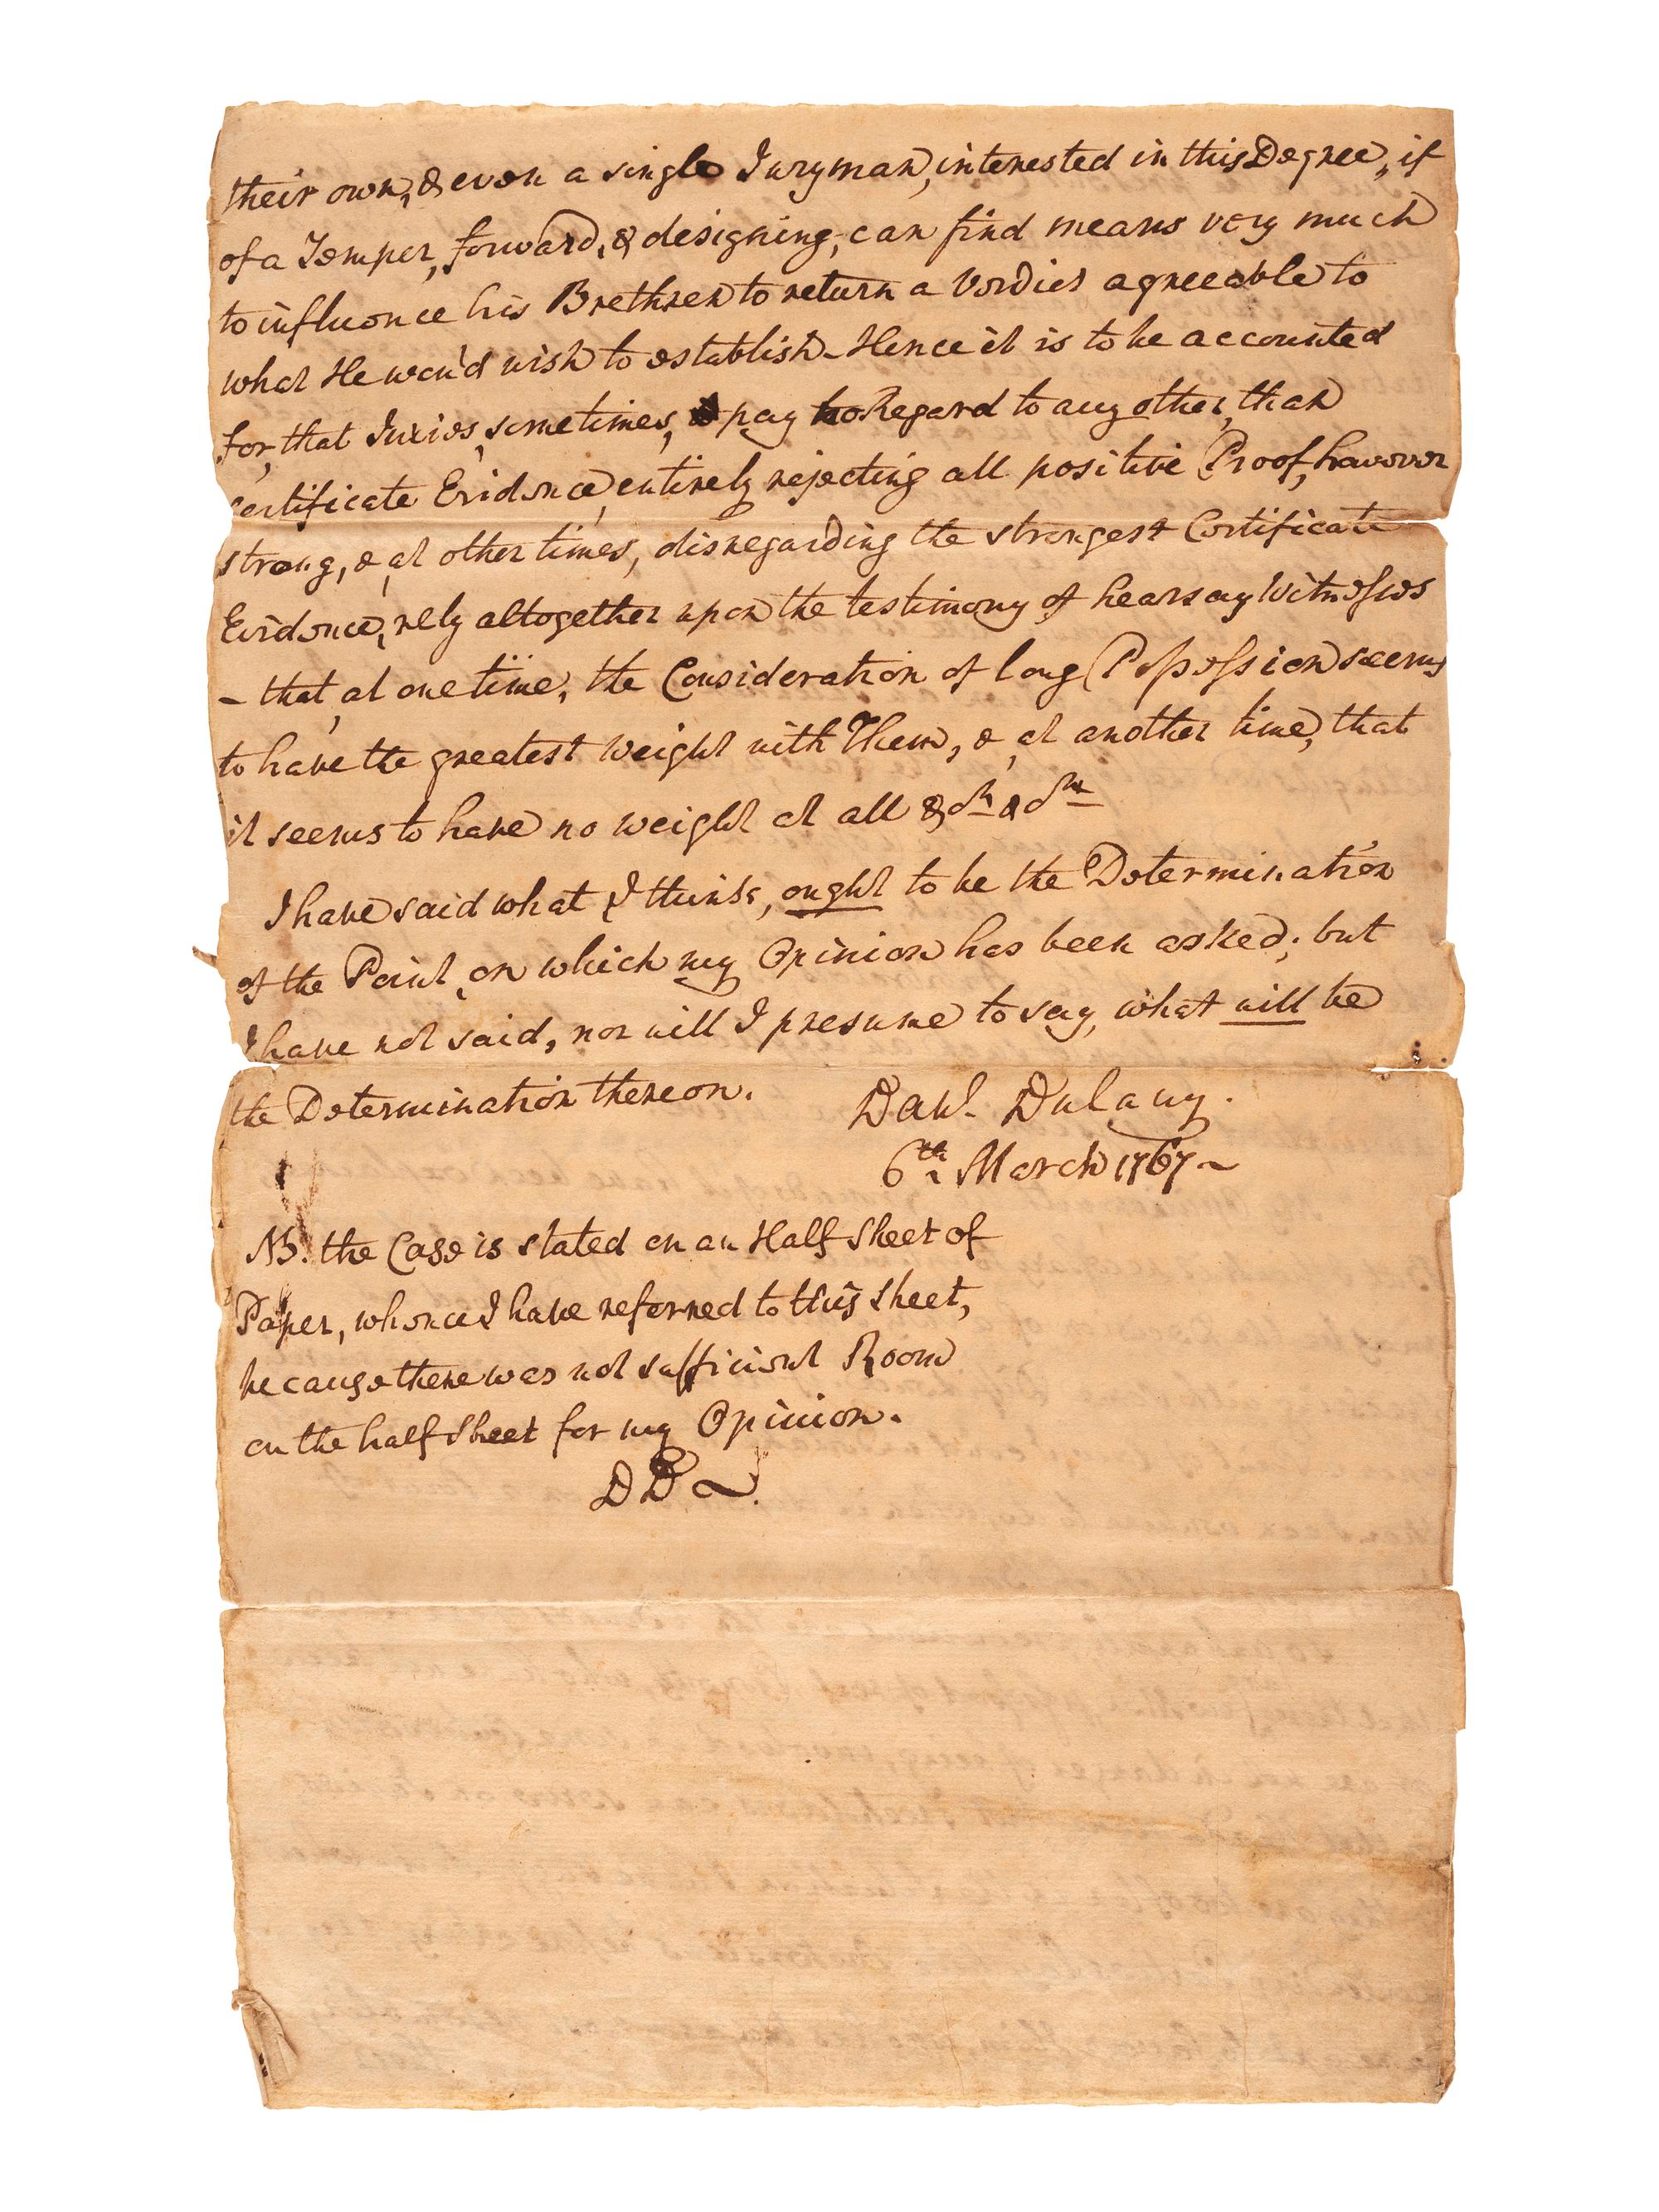 their own, & even a single Juryman, interested in this Degree, if
of a Temper, forward, & designing, can find means very much
to influence his Brethren to return a Verdict agreeable to
what He wou'd wish to establish - Hence it is to be accounted
for, that Juries, sometimes, pay no Regard to any other, than
certificate Evidence, entirely rejecting all positive Proof, however
strong, & at other times, disregarding the strongest Certificate
Evidence, rely altogether upon the testimony of hearsay Witnesses
- that, at one time, the Consideration of long Possession seems
to have the greatest weight with Them, & at another time, that
it seems to have no weight at all
I have said what I think, ought to be the Determination
of the Point, on which my Opinion has been asked; but
I have not said, nor will I presume to say, what will be
the Determination thereon.
Danl. Dulany.
6th March 1767 -
NB. the Case is stated on an Half Sheet of
Paper, whence I have referred to this Sheet,
because there was not sufficient Room
on the half Sheet for my Opinion.
DD